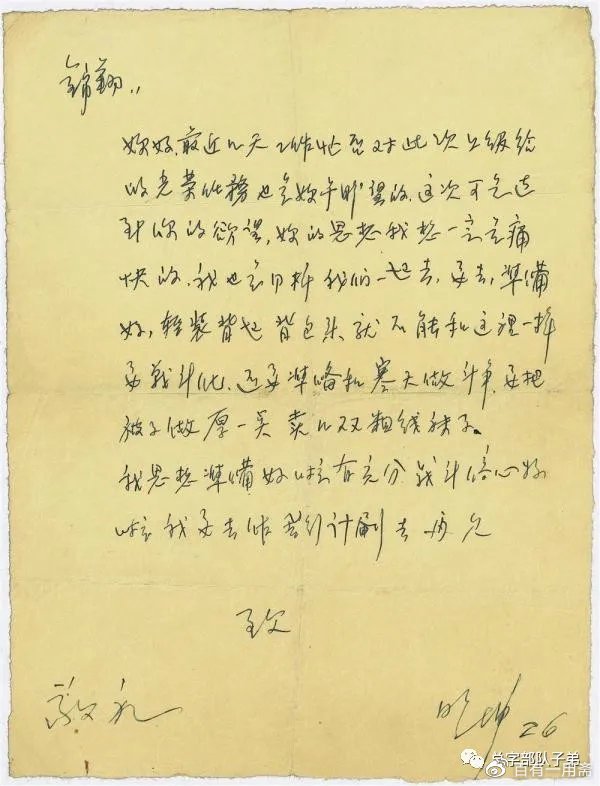 锦翔..
妳好,最近几天工作忙吧对此次上级给
的光荣任務也是妳午盼望的,这次可是达
到你的欲望,妳的思想我想一定是痛
快的,我也是同样我们一起去,要去,準備
好,轻装背起背包来,就不能和这里一样
要战斗化,还要準备和寒天做斗争,要把
被子做厚一点 卖几双粗线袜子。
我思想準備好啦有充分战斗信心好
啦我要去作计劃去再见
致
敬礼
明坤 26
总字部队子弟
百有一用斋